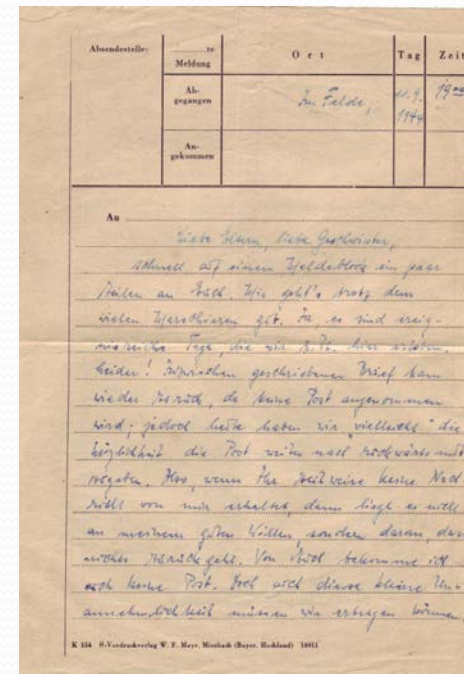 Absendestelle:
te
Meldung
Ort
Tag
Zeit
Ab-
gegangen
Im Felde,
11.9.
1944
19 00
An-
gekommen
An
Liebe Eltern, liebe Geschwister,
schnell auf einem Meldeblock ein paar
Zeilen an Euch. Mir geht's trotz dem
vielen Marschieren gut. Ja, es sind ereig-
nisreiche Tage, die wir z. Zt. hier erleben.
Leider! Inzwischen geschriebener Brief kam
wieder zurück, da keine Post angenommen
wird; jedoch heute haben wir "vielleicht" die
Möglichkeit die Post weiter nach rückwärts mit
zugeben. Also, wenn Ihr zeitweise keine Nach
richt von mir erhaltet, dann liegt es nicht
an meinem guten Willen, sondern daran, dass
nichts zurück geht. Von Euch bekomme ich
auch keine Post. Doch auch diese kleine Un-
annehmlichkeit müssen wir ertragen können.
K 154 Vordruckverlag W. F. Mayr, Miesbach (Bayer. Hochland)